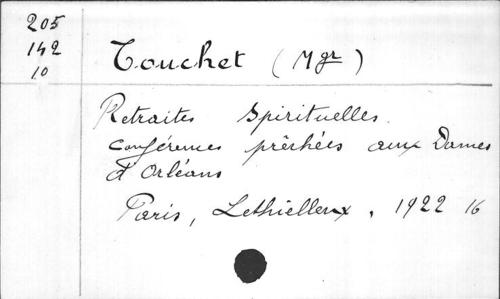 205
142
10
Touchet (Mgr)
Retraites Spirituelles.
Conférences prêchées aux Dames
d'Orléans
Paris, Lethielleux, 1922 16